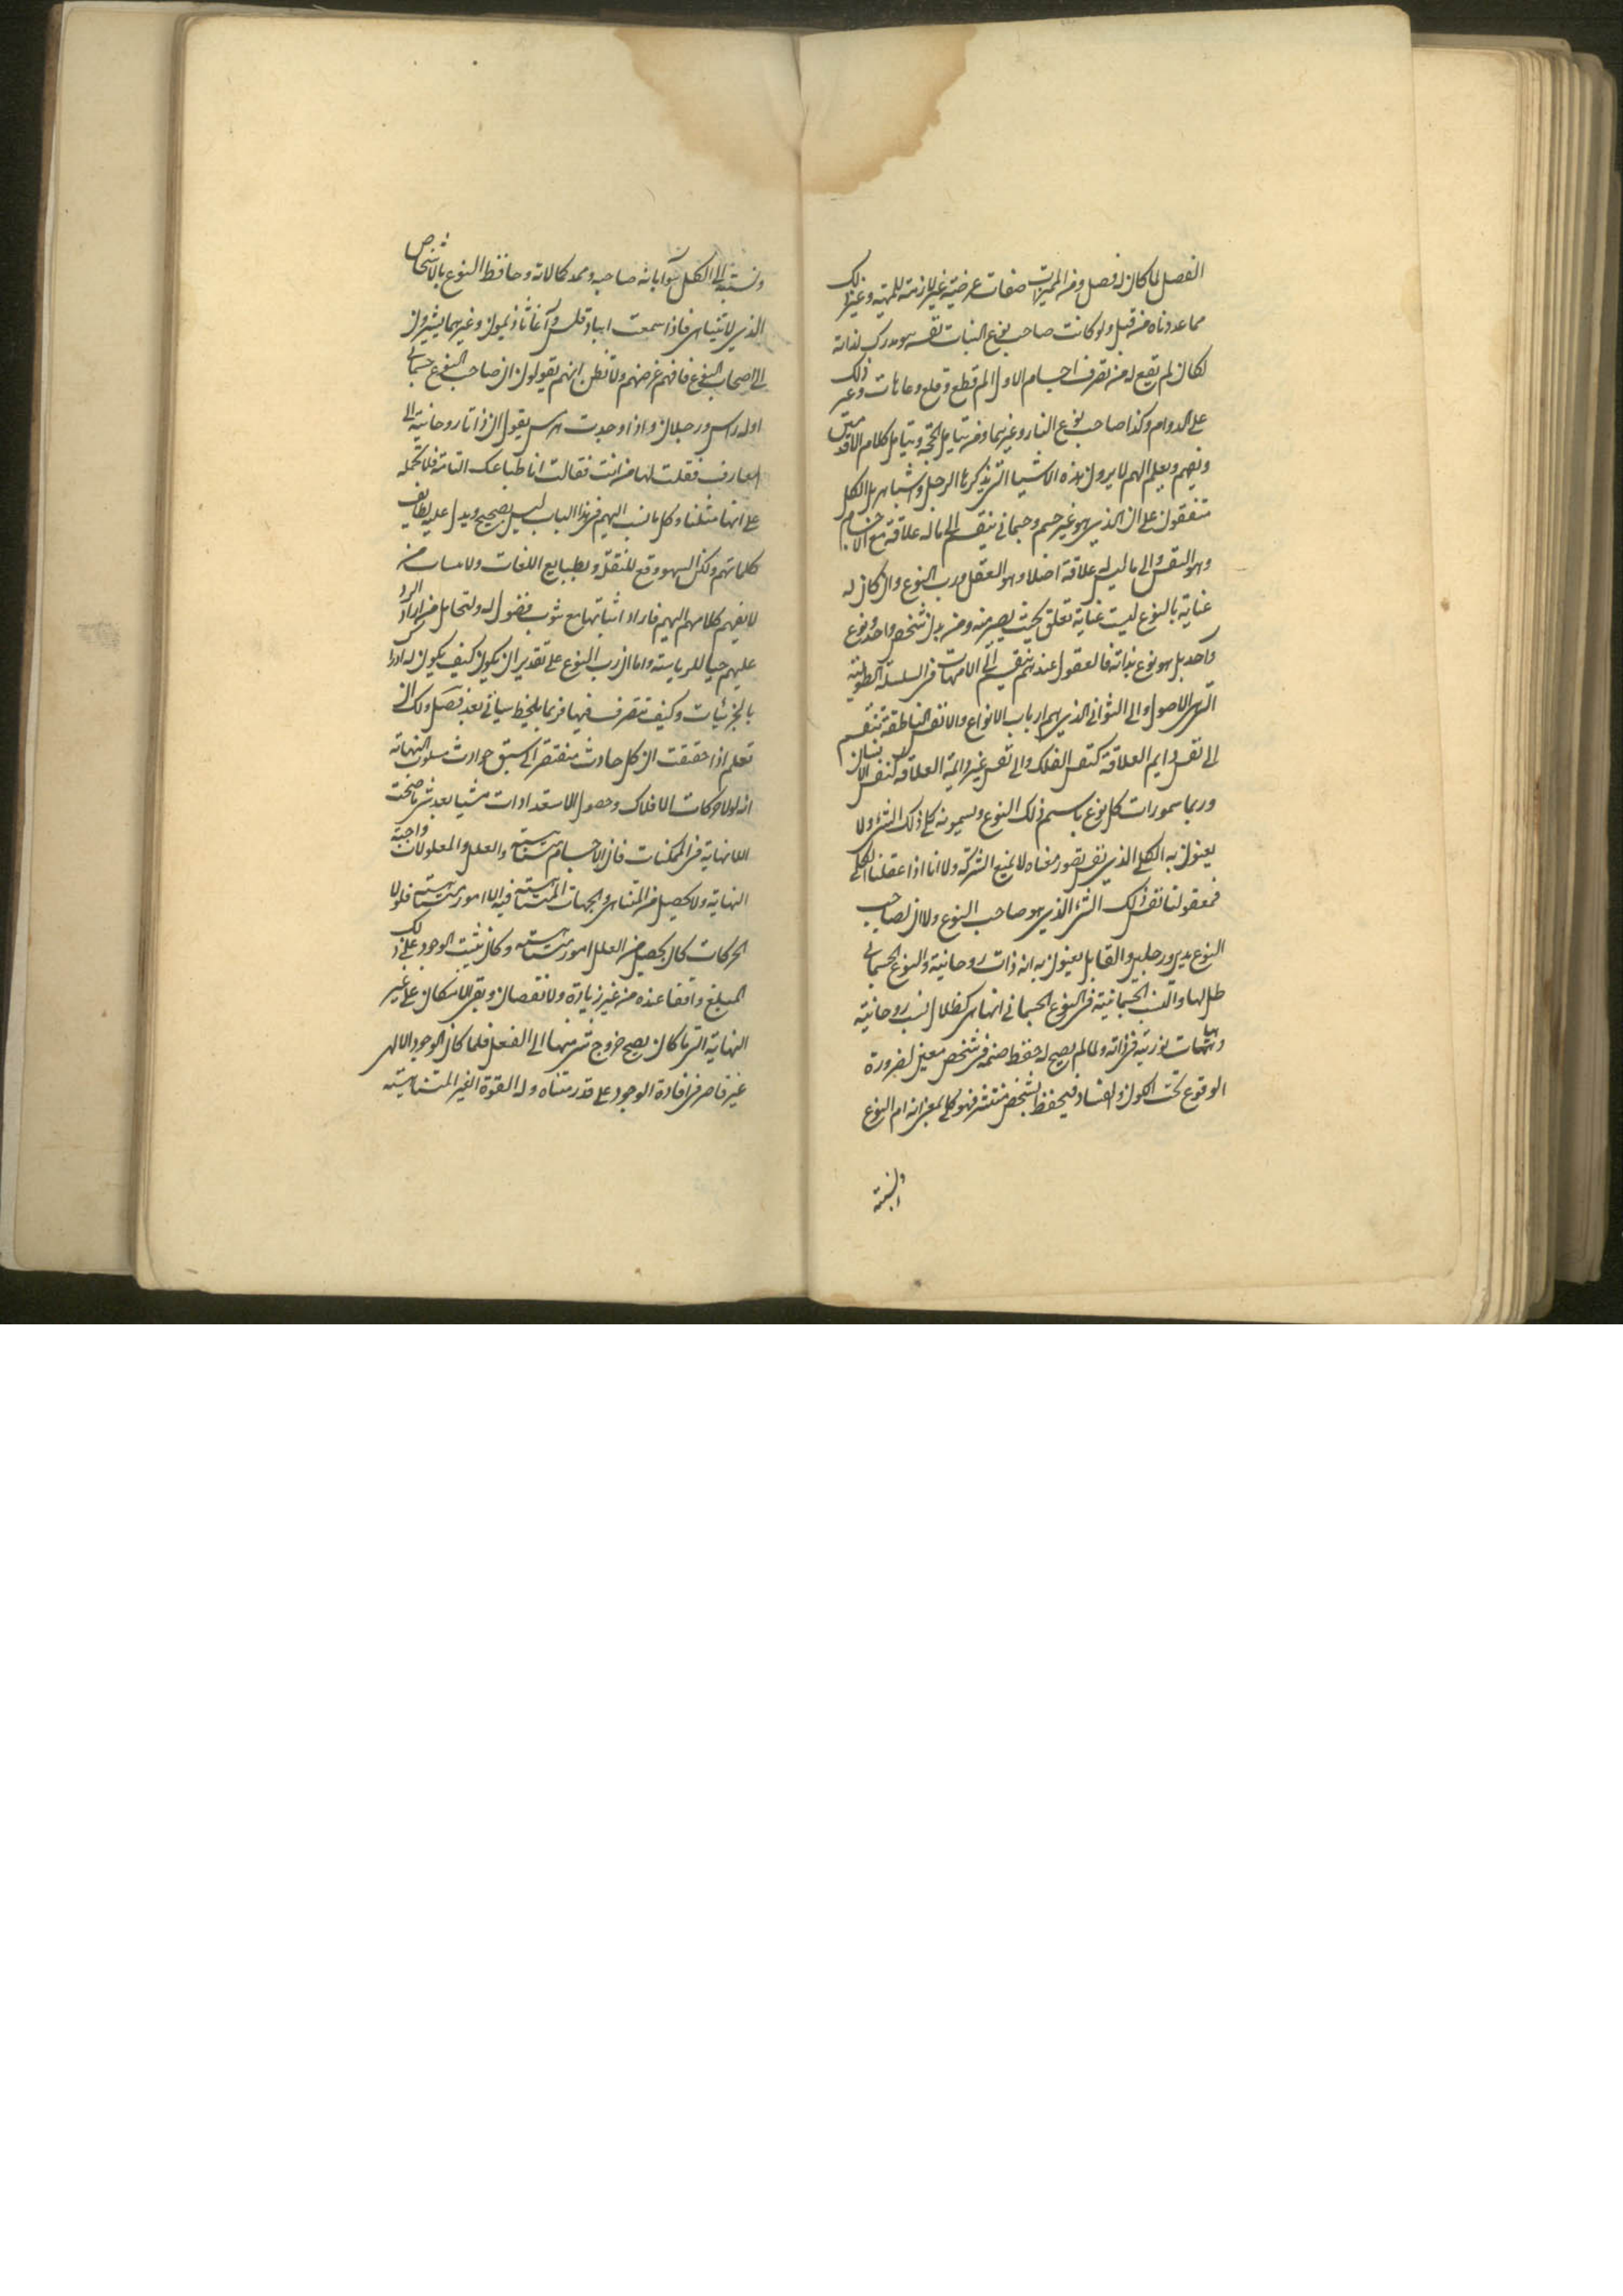 الفصل لما كان له فصل ومن المميزات صفات عرضية غير لازمة للمهية وغير ذلك
مما عددناه من قبل ولو كانت صاحب نوع النبات نفسه هو مدرك لذاته
لكان لم تقع له من تصرف اجسام الاول الم قطع وقلع وعاهات وغير ذلك
على الدوام وكذا صاحب نوع النار وغيرهما ومن يتامل الحجة ويتامل كلام الاقدمين
ويفهم ويعلم انهم لا يرون هذه الاشيا التي يذكرها الرجل واشباهه بل الكل
متفقون على ان الذي هو غير جسم وجسماني ينقسم الى ما له علاقة مع الاجسام
وهو النفس والى ما ليس له علاقة اصلا وهو العقل ورب النوع وان كان له
عناية بالنوع ليست عناية تعلق بحيث يصير منه ومن بدن شخص واحد ونوع
واحد بل هو نوع بذاته فالعقول عندهم تنقسم الى الامهات في السلسلة الطولية
التي هي الاصول والى الثواني الذين هم ارباب الانواع والانفس الناطقة تنقسم
الى نفس دايم العلاقة كنفس الفلك والى نفس غير دايمة العلاقة كنفس الانسان
وربما سموا رب كل نوع باسم ذلك النوع ويسمونه كلي ذلك الشي ولا
يعنون به الكلي الذي نفس تصور معناه لا يمنع الشركة ولا انا اذا عقلنا الكلي
فمعقولنا نفس ذلك الشي الذي هو صاحب النوع ولا ان لصاحب
النوع يدين ورجلين والقابل يعنون به انه ذات روحانية والنوع الجسماني
ظل لها والنسب الجسمانية في النوع الجسماني انما هي كظلال لنسب روحانية
وهيئات نورية في ذاته ولما لم يصح له حفظ صنمه في شخص معين لضرورة
الوقوع تحت الكون والفساد فيحفظ بشخص منتشر فهو كلي بمعنى انه ام النوع
والنسبة
ونسبته الى الكل سوا بانه صاحبه وممد كمالاته وحافظ النوع بالاشخاص
الذي لا يتناهى فاذا سمعت انبادقلس وآغاثاذيمون وغيرهما يشيرون
الى اصحاب النوع فافهم غرضهم ولا تظن انهم يقولون ان صاحب النوع جسماني
او له راس ورجلان واذا وجدت هرمس يقول ان ذاتا روحانية الى
المعارف فقلت لها من انت فقالت انا طباعك التامة فلا تحمله
على انها مثلنا وكل ما نسب اليهم في هذا الباب ليس بصحيح ويدل عليه لطايف
كلماتهم ولكن السهو وقع للنقل وبطبايع اللغات ولا مساس من
لا يفهم كلامهم اليهم فاراد اثباتها مع شوب فضول له ولتحامل من اراد الرد
عليهم حبا للرياسة واما ان رب النوع على تقدير ان يكون كيف يكون له ادراك
بالجزئيات وكيف تتصرف فيها فربما يلخبط سياتي بعد فصل ولك ان
تعلم اذا حققت ان كل حادث مفتقر الى سبق حوادث مسلوب النهاية
انه لولا حركات الافلاك وحصول الاستعدادات شيا بعد شي ما صحت
اللانهاية في الممكنات فان الاجسام متناهية والعلل والمعلولات واجبة
النهاية ولا يحصل من المتناهي والجهات المتناهية فيه الا امور متناهية فلولا
الحركات كان يحصل من العلل امور متناهية وكان يثبت الوجود على ذلك
المبلغ واقفا عنده من غير زيادة ولا نقصان وبقي الامكان على غير
النهاية التي ما كان يصح خروج شي منها الى الفعل فلما كان الوجود الالهي
غير قاصر في افادة الوجود على قدر متناه وله القوة الغير المتناهية